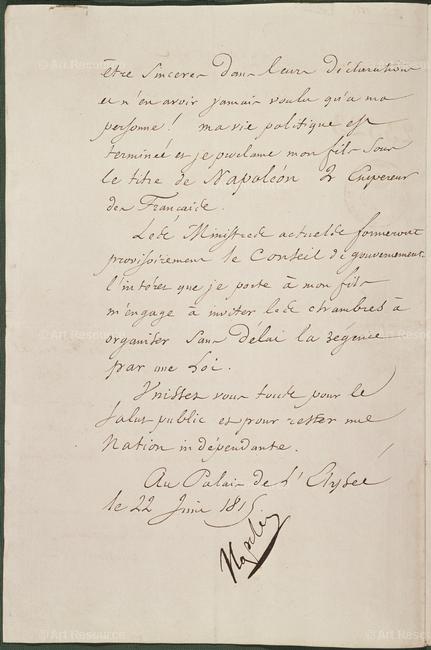 être sinceres dans leurs déclarations
et n'en avoir jamais voulu qu'a ma
personne! ma vie politique est
terminée et je proclame mon fils sous
le titre de Napoléon 2 Empereur
des Francais.
Les Ministres actuels formeront
provisoirement le Conseil de gouvernement.
l'intéret que je porte à mon fils
m'engage à inviter les chambres à
organiser sans délai la régence
par une Loi.
Unissez vous tous pour le
salut public et pour rester une
Nation indépendante.
Au Palais de l'Elysée
le 22 Juin 1815.
Napoleon
© Art Resource
© Art Resource
© Art Resource
© Art Resource